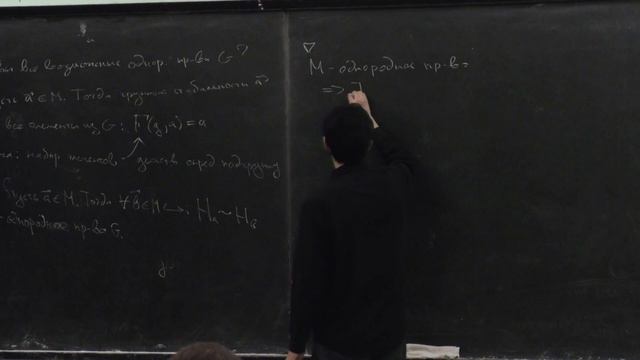 все возможные однор. пр-ва G?
a ∈ M. Тогда группа стабильности a
все элементы из G: T(g, a) = a
набор элементов действ. опред. подгруппу
Пусть a ∈ M. Тогда ∀ b ∈ M ↪ Hₐ ~ H_b
однородное пр-во G.
▽
M - однородное пр-во
⇒ ∃